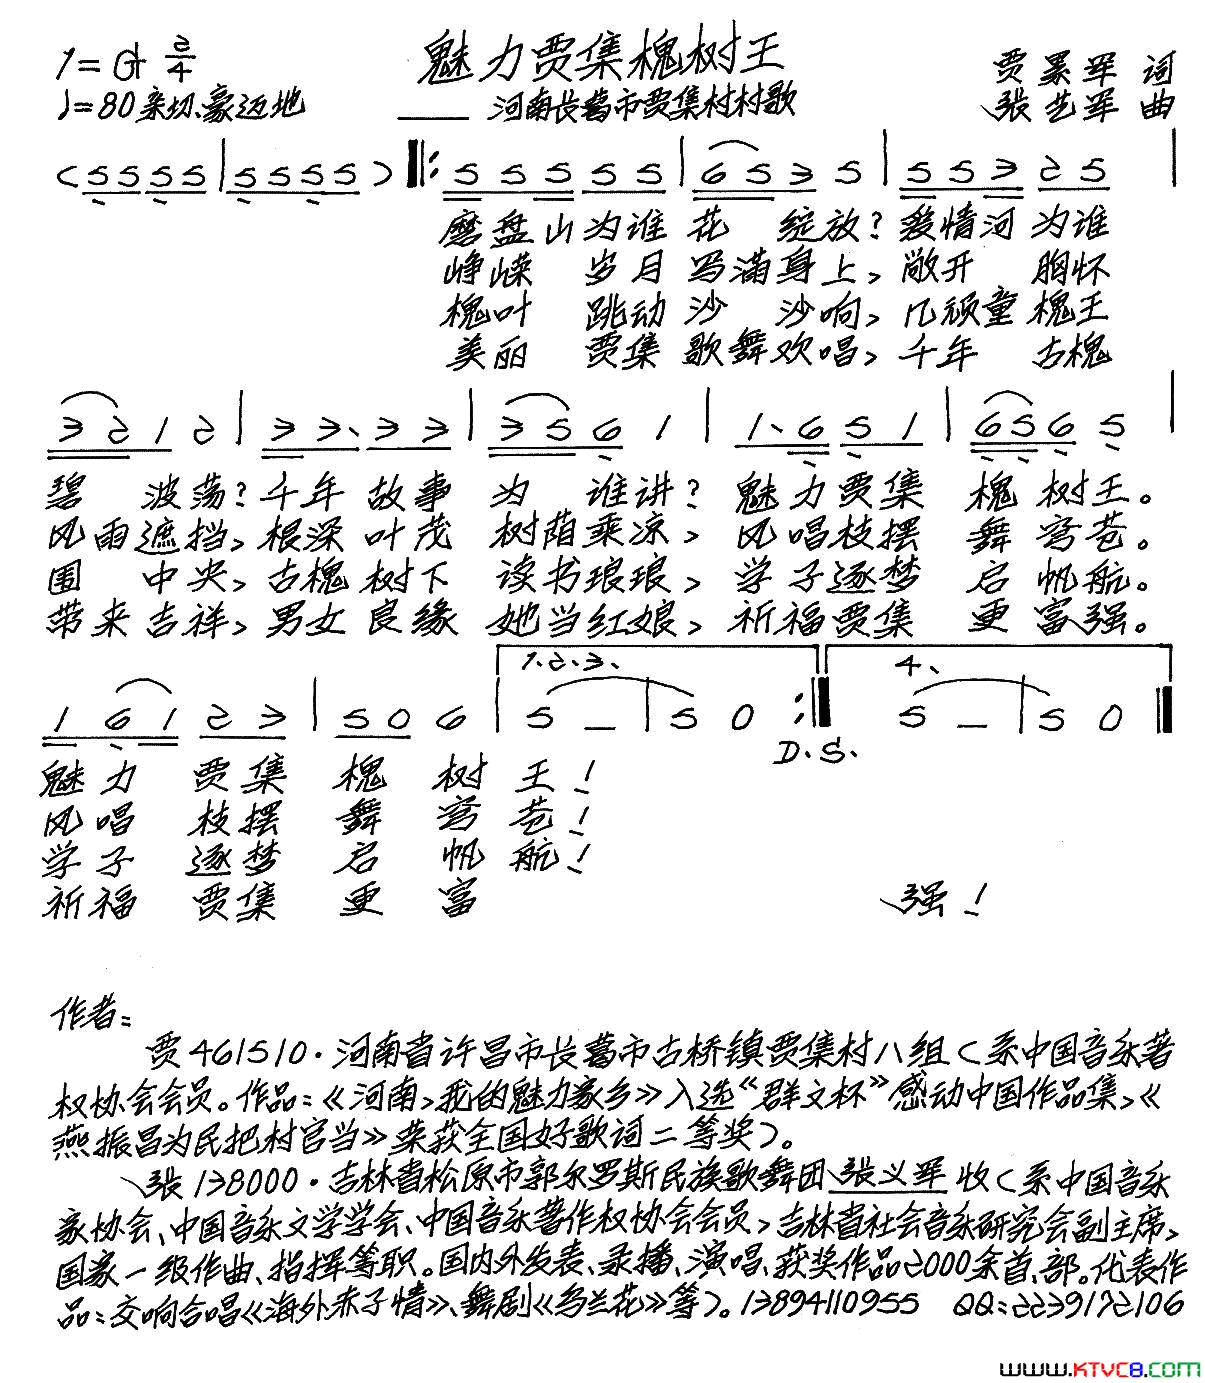 1=G 2/4
魅力贾集槐树王
贾累军 词
♩=80亲切、豪迈地
——河南长葛市贾集村村歌
张艺军 曲
(5555|5555)‖:55555|6535|55325|
磨盘山为谁花绽放?爱情河为谁
峥嵘岁月写满身上,敞开胸怀
槐叶跳动沙沙响,几顽童槐王
美丽贾集歌舞欢唱,千年古槐
3212|33、33|3561|1、651|6565|
碧波荡?千年故事为谁讲?魅力贾集槐树王。
风雨遮挡,根深叶茂树荫乘凉,风唱枝摆舞穹苍。
围中央,古槐树下读书琅琅,学子逐梦启帆航。
带来吉祥,男女良缘她当红娘,祈福贾集更富强。
1.2.3. 4.
16123|506|5—|50:‖5—|50‖
D.S.
魅力贾集槐树王!
风唱枝摆舞穹苍!
学子逐梦启帆航!
祈福贾集更富强!
作者:
贾461510·河南省许昌市长葛市古桥镇贾集村八组(系中国音乐著
权协会会员。作品:《河南,我的魅力家乡》入选“群文杯”感动中国作品集,《
燕振昌为民把村官当》荣获全国好歌词二等奖)。
张138000·吉林省松原市郭尔罗斯民族歌舞团张义军收(系中国音乐
家协会、中国音乐文学学会、中国音乐著作权协会会员,吉林省社会音乐研究会副主席,
国家一级作曲、指挥等职。国内外发表、录播、演唱、获奖作品2000余首、部。代表作
品:交响合唱《海外赤子情》、舞剧《乌兰花》等)。13894110955 QQ:2239172106
www.KTVC8.com